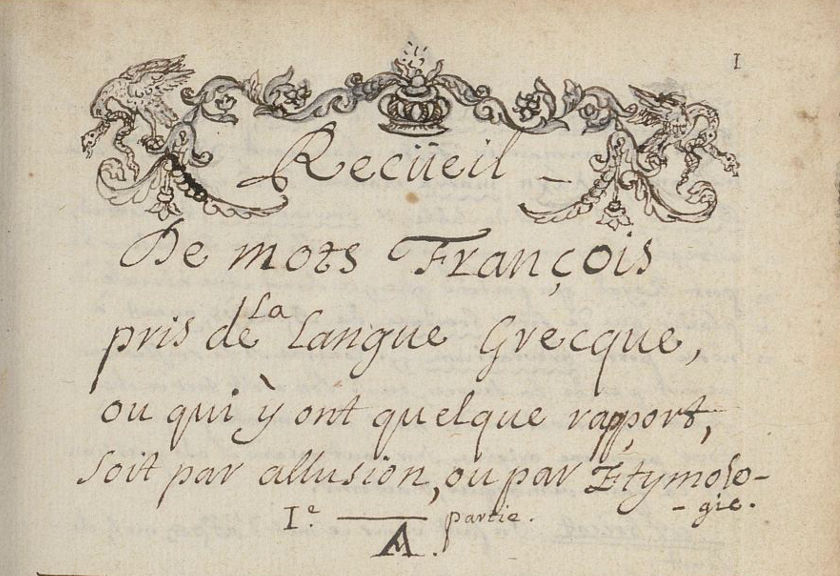 1
Recüeil -
De mots François
pris de la Langue Grecque,
ou qui ÿ ont quelque rapport,
soit par allusion, ou par Etymolo-
-gie.
I.e —— partie.
A.